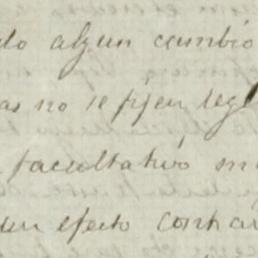 do algun cambio
as no se fijen leg
facultativo m
un efecto contra